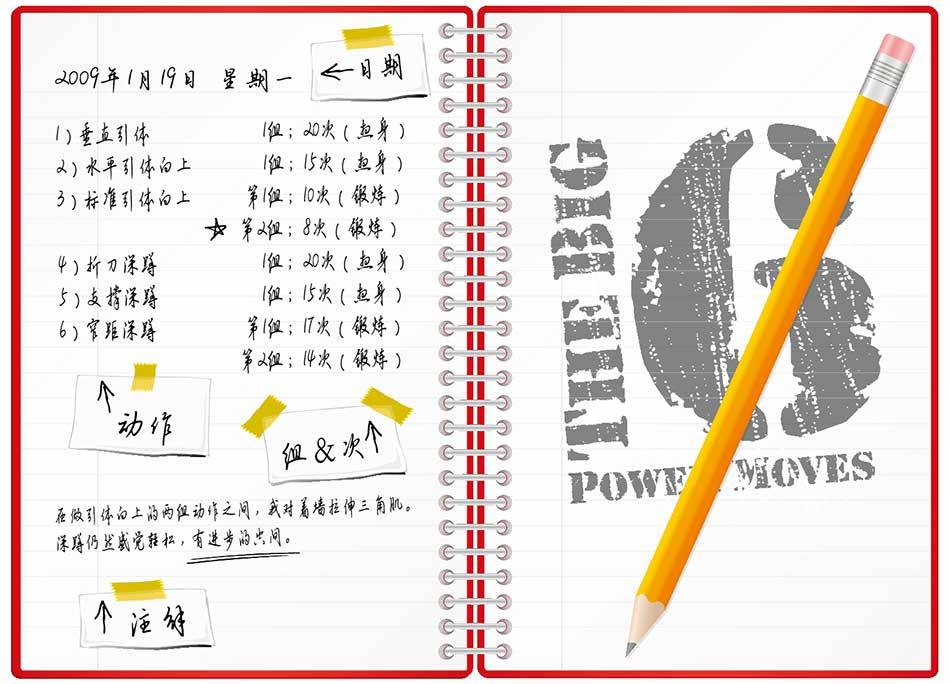 2009年1月19日 星期一
←日期
1）垂直引体 1组；20次（热身）
2）水平引体向上 1组；15次（热身）
3）标准引体向上 第1组；10次（锻炼）
☆ 第2组；8次（锻炼）
4）折刀深蹲 1组；20次（热身）
5）支撑深蹲 1组；15次（热身）
6）窄距深蹲 第1组；17次（锻炼）
第2组；14次（锻炼）
↑动作
组&次↑
在做引体向上的两组动作之间，我对着墙拉伸三角肌。
深蹲仍然感觉轻松，有进步的空间。
↑注解
THE BIG
6
POWER MOVES